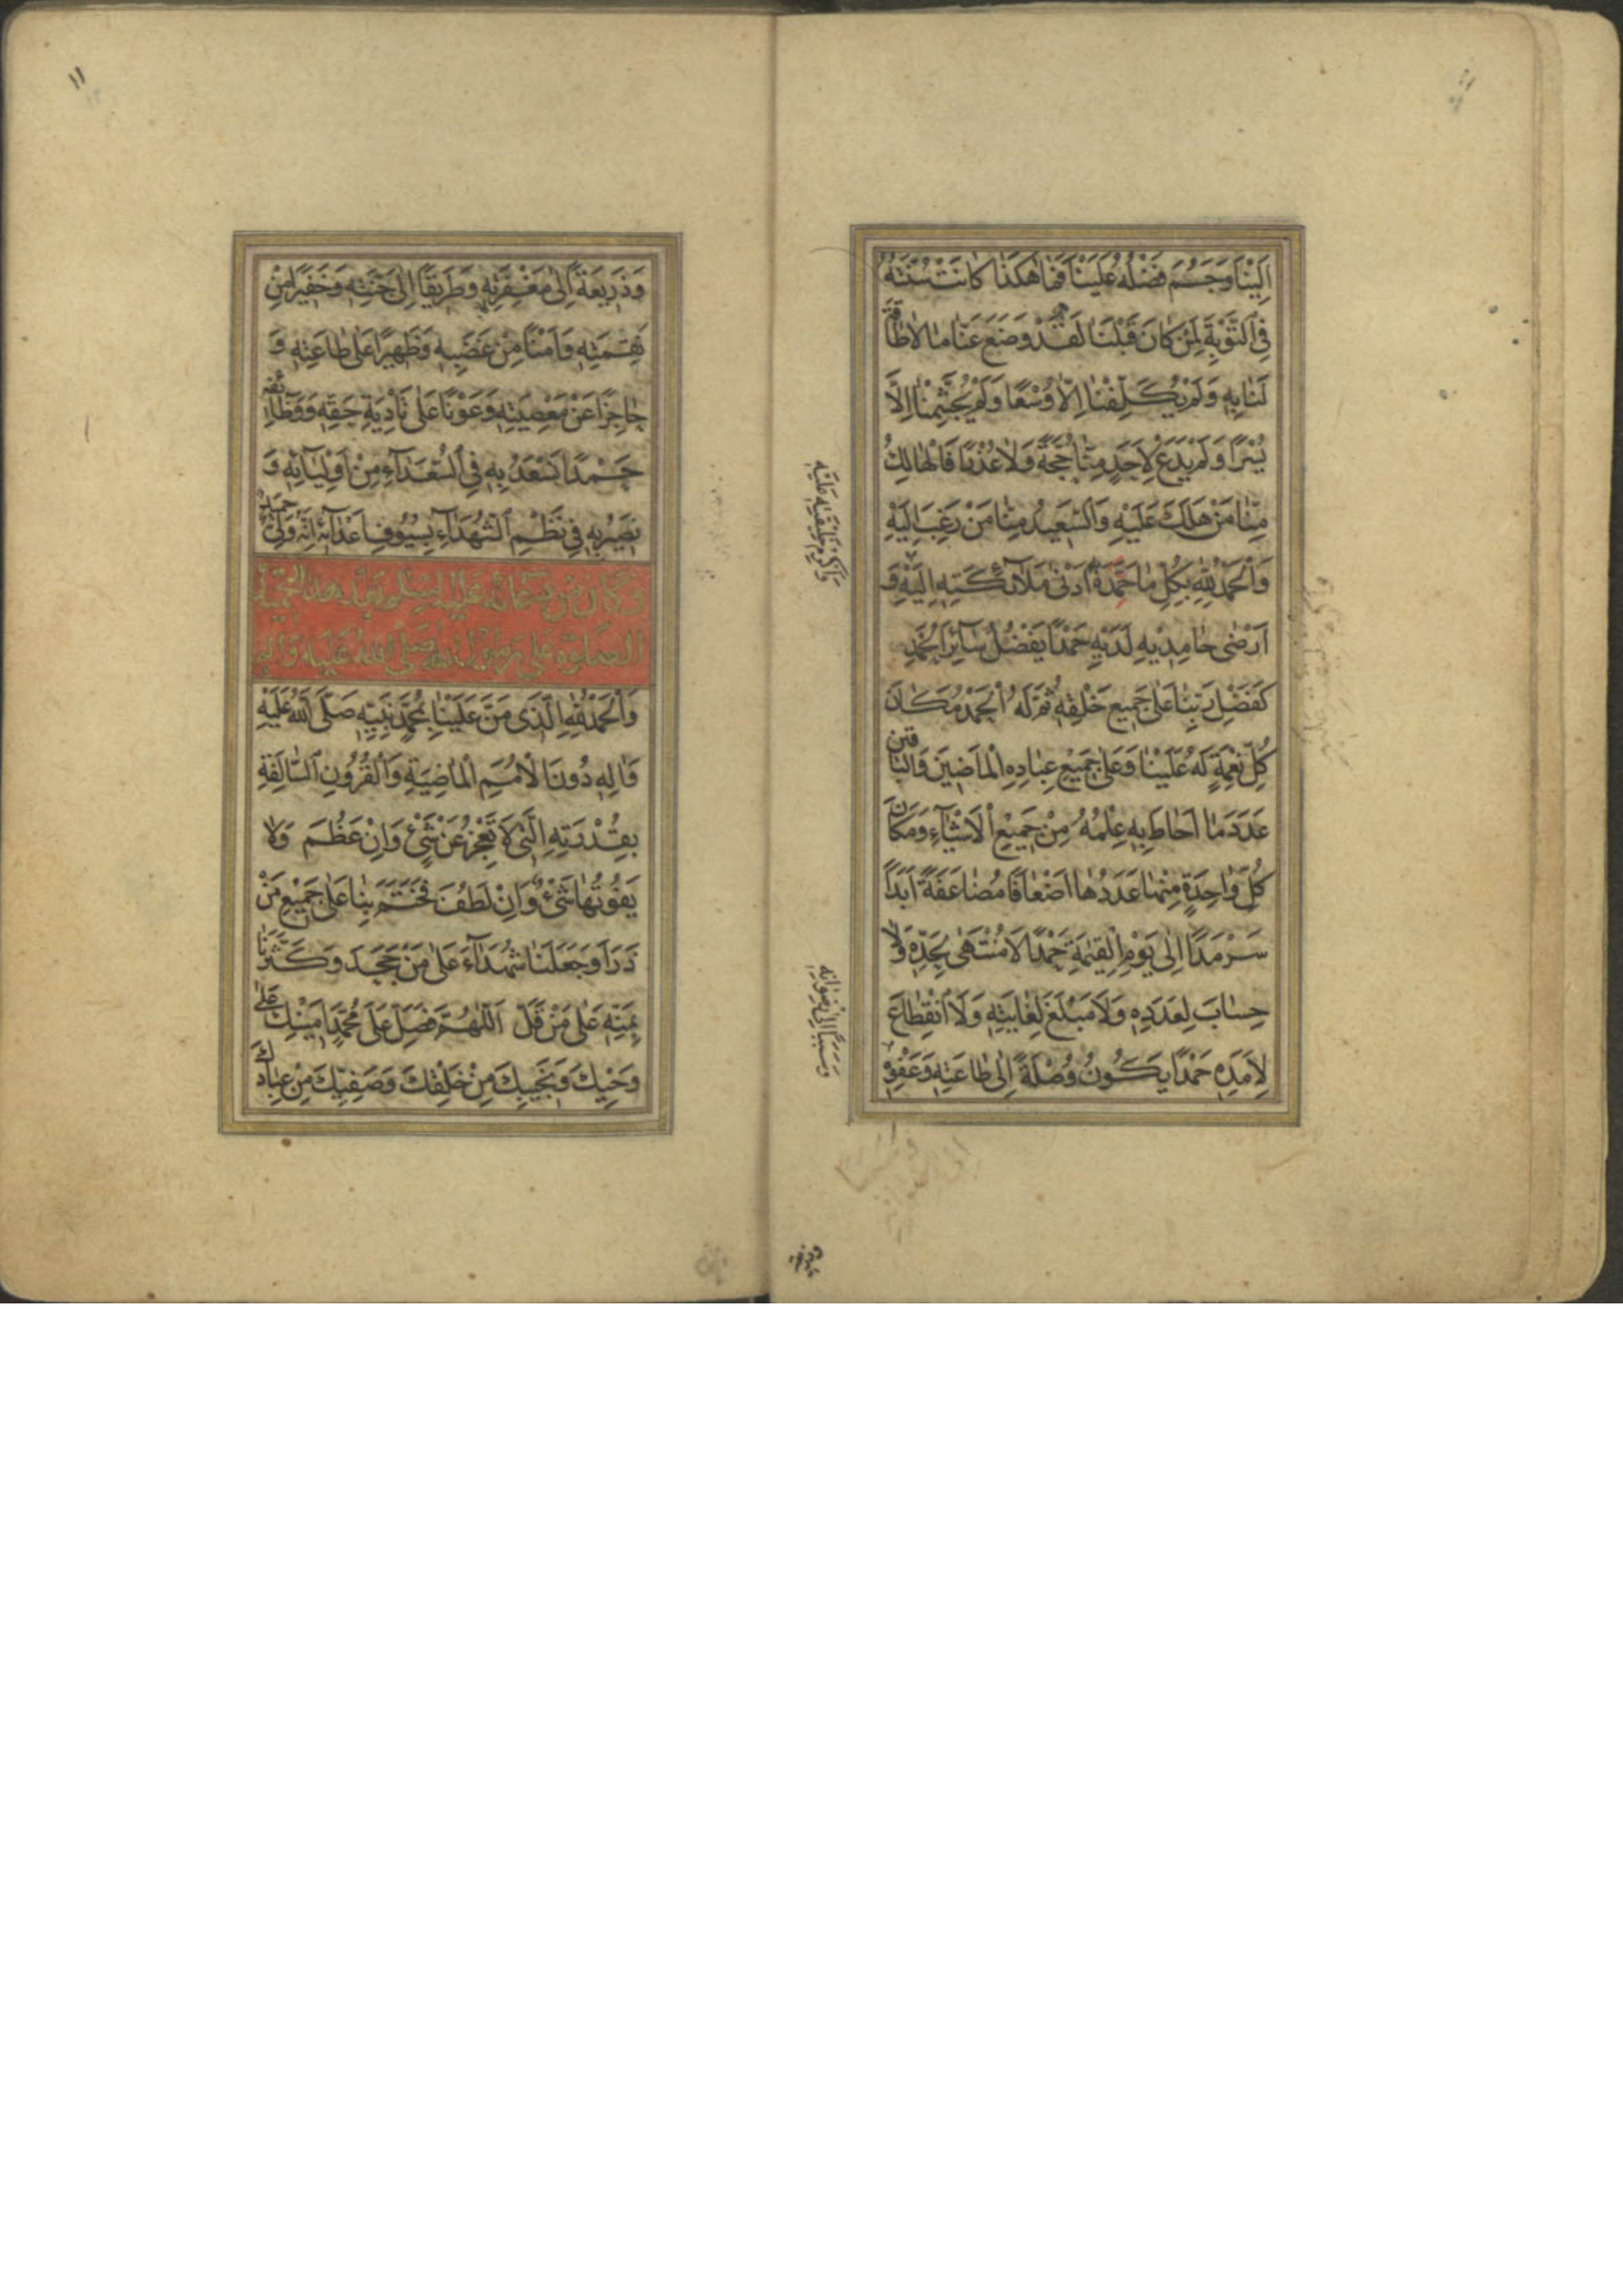 اِلَيْنَا وَجَسُمَ فَضْلُهُ عَلَيْنَا فَمَا هٰكَذَا كَانَتْ سُنَّتُهُ
فِي التَّوْبَةِ لِمَنْ كَانَ قَبْلَنَا لَقَدْ وَضَعَ عَنَّا مَا لَا طَاقَةَ
لَنَا بِهِ وَلَمْ يُكَلِّفْنَا اِلَّا وُسْعًا وَلَمْ يُجَشِّمْنَا اِلَّا
يُسْرًا وَلَمْ يَدَعْ لِاَحَدٍ مِنَّا حُجَّةً وَلَا عُذْرًا فَالْهَالِكُ
مِنَّا مَنْ هَلَكَ عَلَيْهِ وَالسَّعِيدُ مِنَّا مَنْ رَغِبَ اِلَيْهِ
وَالْحَمْدُ لِلّٰهِ بِكُلِّ مَا حَمِدَهُ اَدْنٰى مَلَآئِكَتِهِ اِلَيْهِ وَ
اَرْضٰى حَامِدِيهِ لَدَيْهِ حَمْدًا يَفْضُلُ سَآئِرَ الْحَمْدِ
كَفَضْلِ رَبِّنَا عَلٰى جَمِيعِ خَلْقِهِ ثُمَّ لَهُ الْحَمْدُ مَكَانَ
كُلِّ نِعْمَةٍ لَهُ عَلَيْنَا وَعَلٰى جَمِيعِ عِبَادِهِ الْمَاضِينَ وَالْبَاقِينَ
عَدَدَ مَا اَحَاطَ بِهِ عِلْمُهُ مِنْ جَمِيعِ الْاَشْيَآءِ وَمَكَانَ
كُلِّ وَاحِدَةٍ مِنْهَا عَدَدُهَا اَضْعَافًا مُضَاعَفَةً اَبَدًا
سَرْمَدًا اِلٰى يَوْمِ الْقِيٰمَةِ حَمْدًا لَا مُنْتَهٰى لِحَدِّهِ وَلَا
حِسَابَ لِعَدَدِهِ وَلَا مَبْلَغَ لِغَايَتِهِ وَلَا انْقِطَاعَ
لِاَمَدِهِ حَمْدًا يَكُونُ وُصْلَةً اِلٰى طَاعَتِهِ وَعَفْوِهِ
وَسَبَبًا اِلٰى رِضْوَانِهِ
وَذَرِيعَةً اِلٰى مَغْفِرَتِهِ وَطَرِيقًا اِلٰى جَنَّتِهِ وَخَفِيرًا مِنْ
نَقِمَتِهِ وَاَمْنًا مِنْ غَضَبِهِ وَظَهِيرًا عَلٰى طَاعَتِهِ وَ
حَاجِزًا عَنْ مَعْصِيَتِهِ وَعَوْنًا عَلٰى تَاْدِيَةِ حَقِّهِ وَوَظَآئِفِهِ
حَمْدًا نَسْعَدُ بِهِ فِي السُّعَدَآءِ مِنْ اَوْلِيَآئِهِ وَ
نَصِيرُ بِهِ فِي نَظْمِ الشُّهَدَآءِ بِسُيُوفِ اَعْدَآئِهِ اِنَّهُ وَلِيٌّ حَمِيدٌ
وَكَانَ مِنْ دُعَائِهِ عَلَيْهِ السَّلَامُ بَعْدَ هٰذَا التَّحْمِيدِ فِي
الصَّلٰوةِ عَلٰى رَسُولِ اللهِ صَلَّى اللهُ عَلَيْهِ وَآلِهِ
وَالْحَمْدُ لِلّٰهِ الَّذِي مَنَّ عَلَيْنَا بِمُحَمَّدٍ نَبِيِّهِ صَلَّى اللهُ عَلَيْهِ
وَاٰلِهِ دُونَ الْاُمَمِ الْمَاضِيَةِ وَالْقُرُونِ السَّالِفَةِ
بِقُدْرَتِهِ الَّتِي لَا تَعْجِزُ عَنْ شَيْءٍ وَاِنْ عَظُمَ وَلَا
يَفُوتُهَا شَيْءٌ وَاِنْ لَطُفَ فَخَتَمَ بِنَا عَلٰى جَمِيعِ مَنْ
ذَرَاَ وَجَعَلَنَا شُهَدَآءَ عَلٰى مَنْ جَحَدَ وَكَثَّرَنَا
بِمَنِّهِ عَلٰى مَنْ قَلَّ اَللّٰهُمَّ فَصَلِّ عَلٰى مُحَمَّدٍ اَمِينِكَ عَلٰى
وَحْيِكَ وَنَجِيبِكَ مِنْ خَلْقِكَ وَصَفِيِّكَ مِنْ عِبَادِكَ
١١